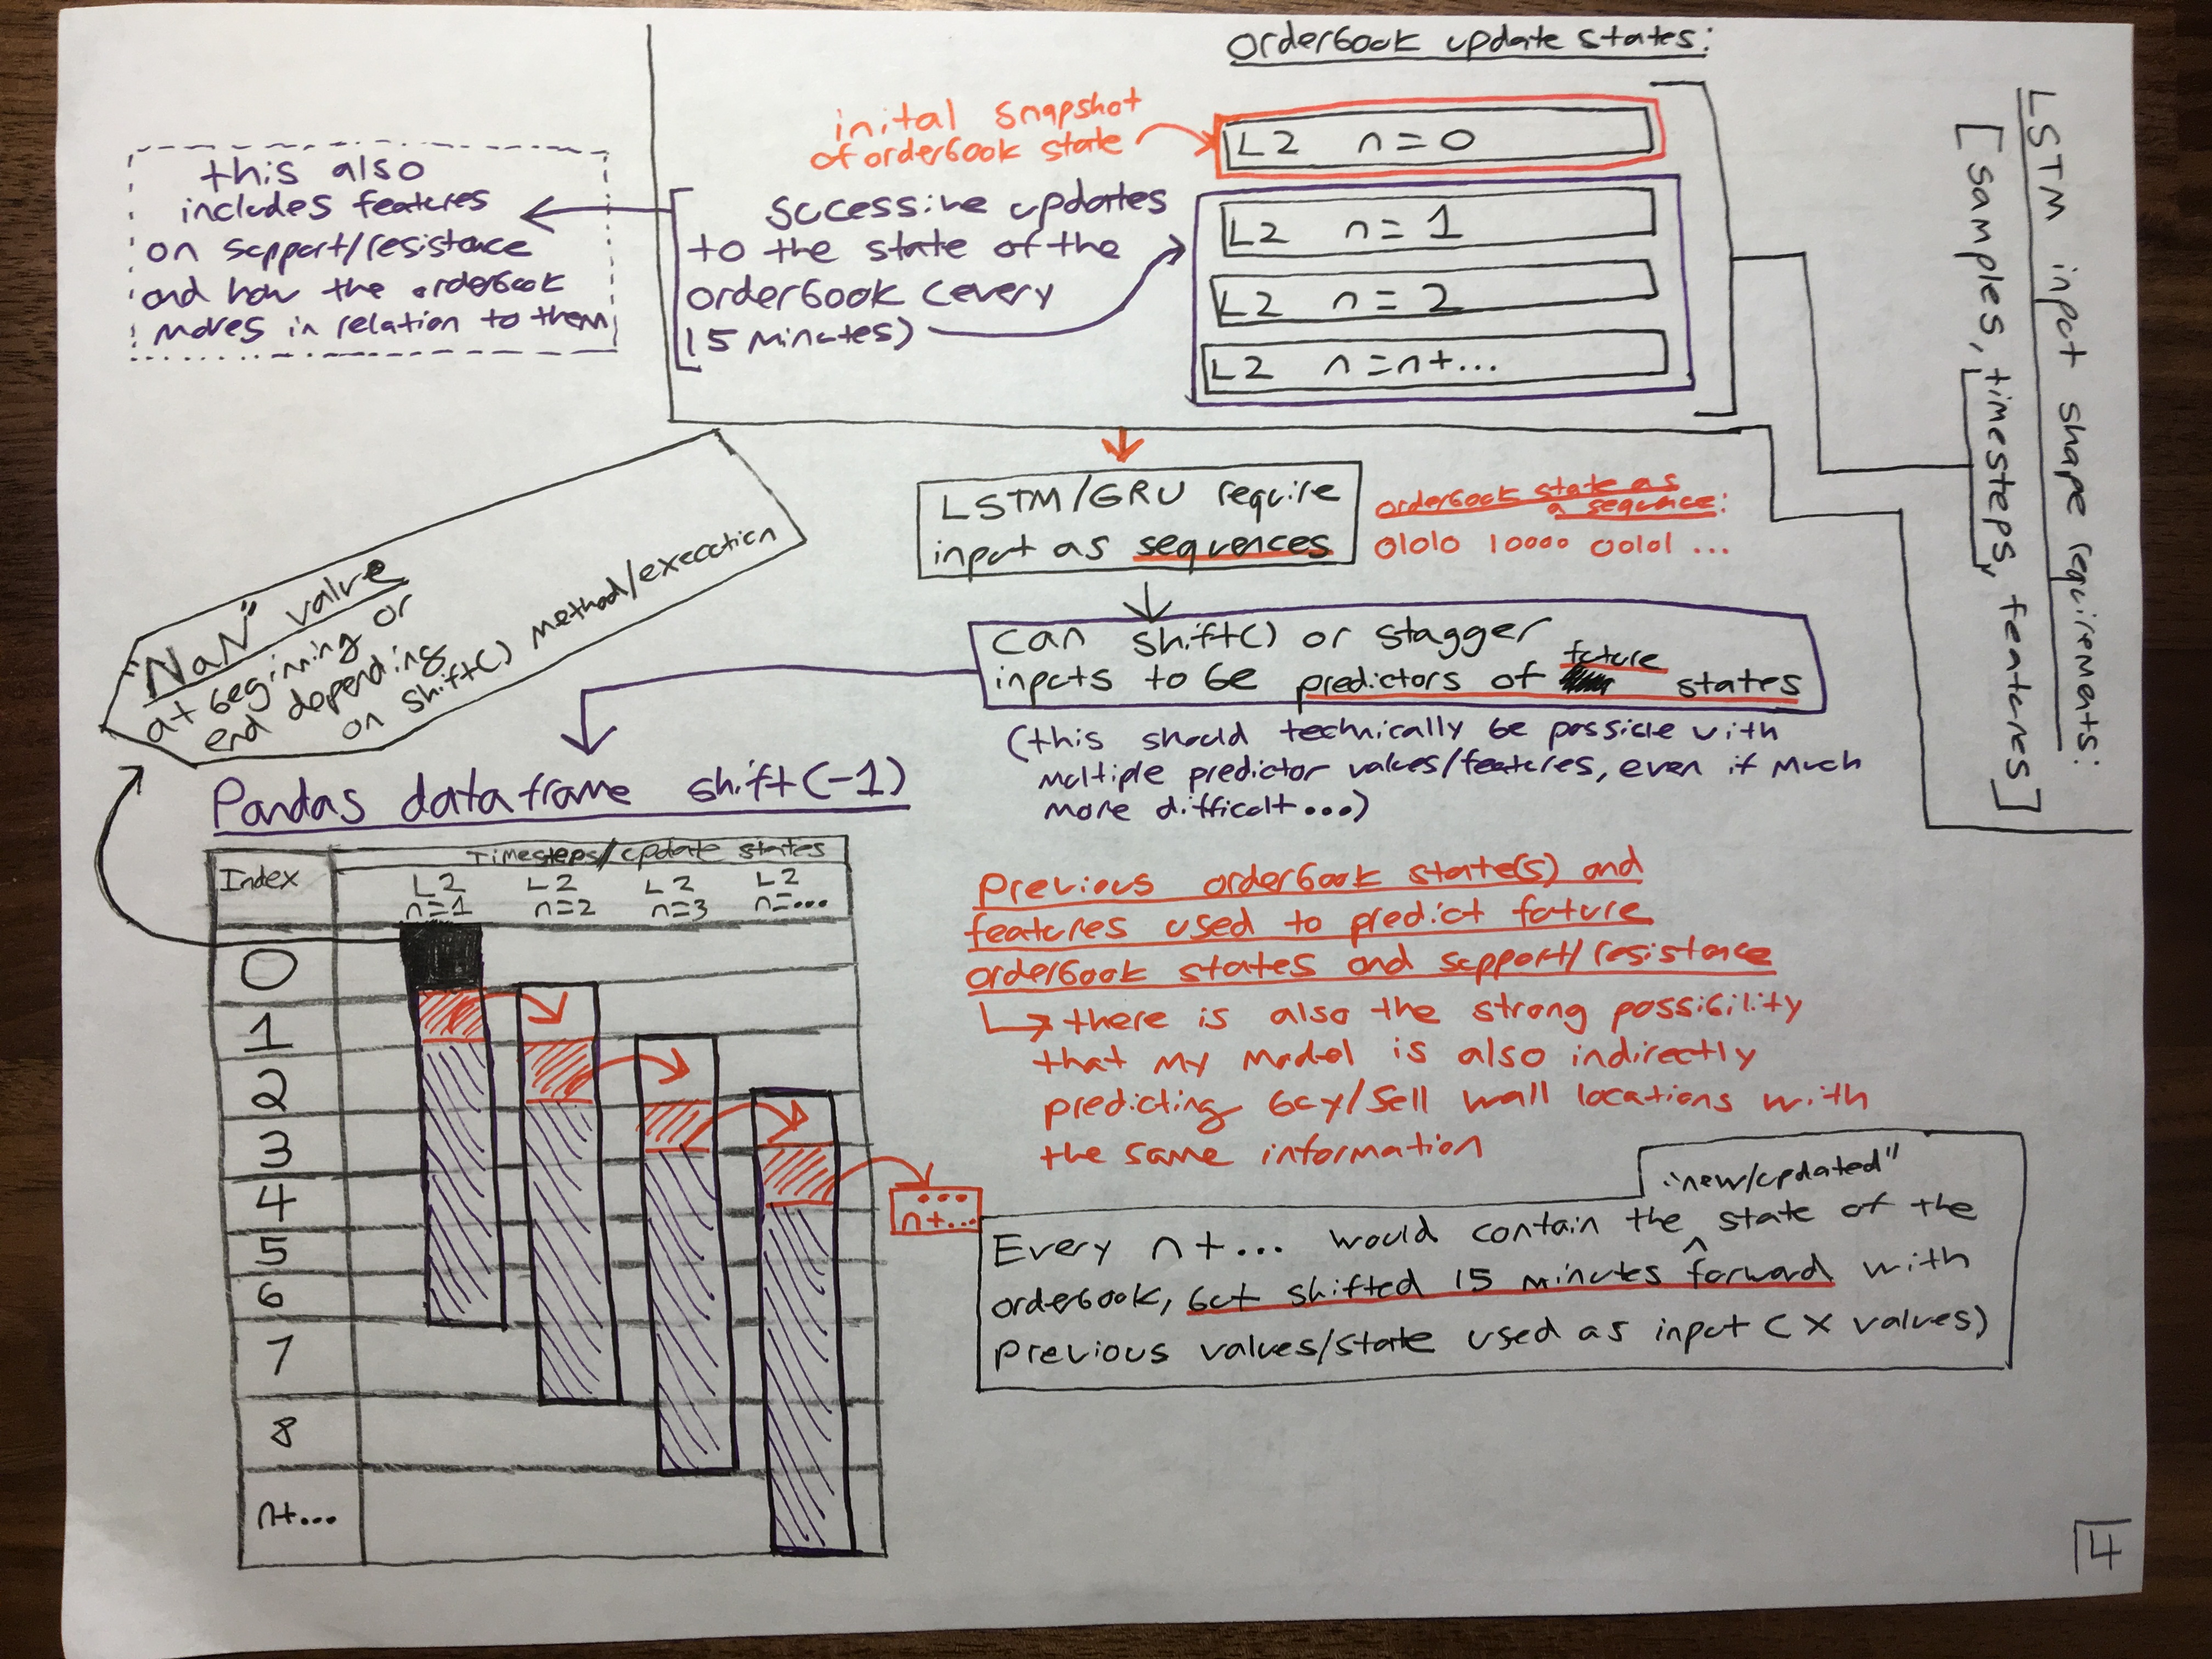 orderbook update states:
inital snapshot
of orderbook state
L2 n=0
L2 n=1
L2 n=2
L2 n=n+...
sucessive updates
to the state of the
orderbook (every
15 minutes)
this also
includes features
on support/resistance
and how the orderbook
moves in relation to them
LSTM input shape requirements:
[samples, timesteps, features]
LSTM/GRU require
input as sequences
orderbook state as
a sequence:
01010 10000 00101 ...
can shift() or stagger
inputs to be predictors of future states
(this should technically be possible with
multiple predictor values/features, even if much
more difficult...)
"NaN" value
at beginning or
end depending
on shift() method/execution
Pandas dataframe shift(-1)
Index
Timesteps/update states
L2 L2 L2 L2
n=1 n=2 n=3 n=...
0
1
2
3
4
5
6
7
8
n+...
Previous orderbook state(s) and
features used to predict future
orderbook states and support/resistance
↳ there is also the strong possibility
that my model is also indirectly
predicting buy/sell wall locations with
the same information
...
n+...
"new/updated"
Every n+... would contain the ^ state of the
orderbook, but shifted 15 minutes forward with
previous values/state used as input (X values)
4